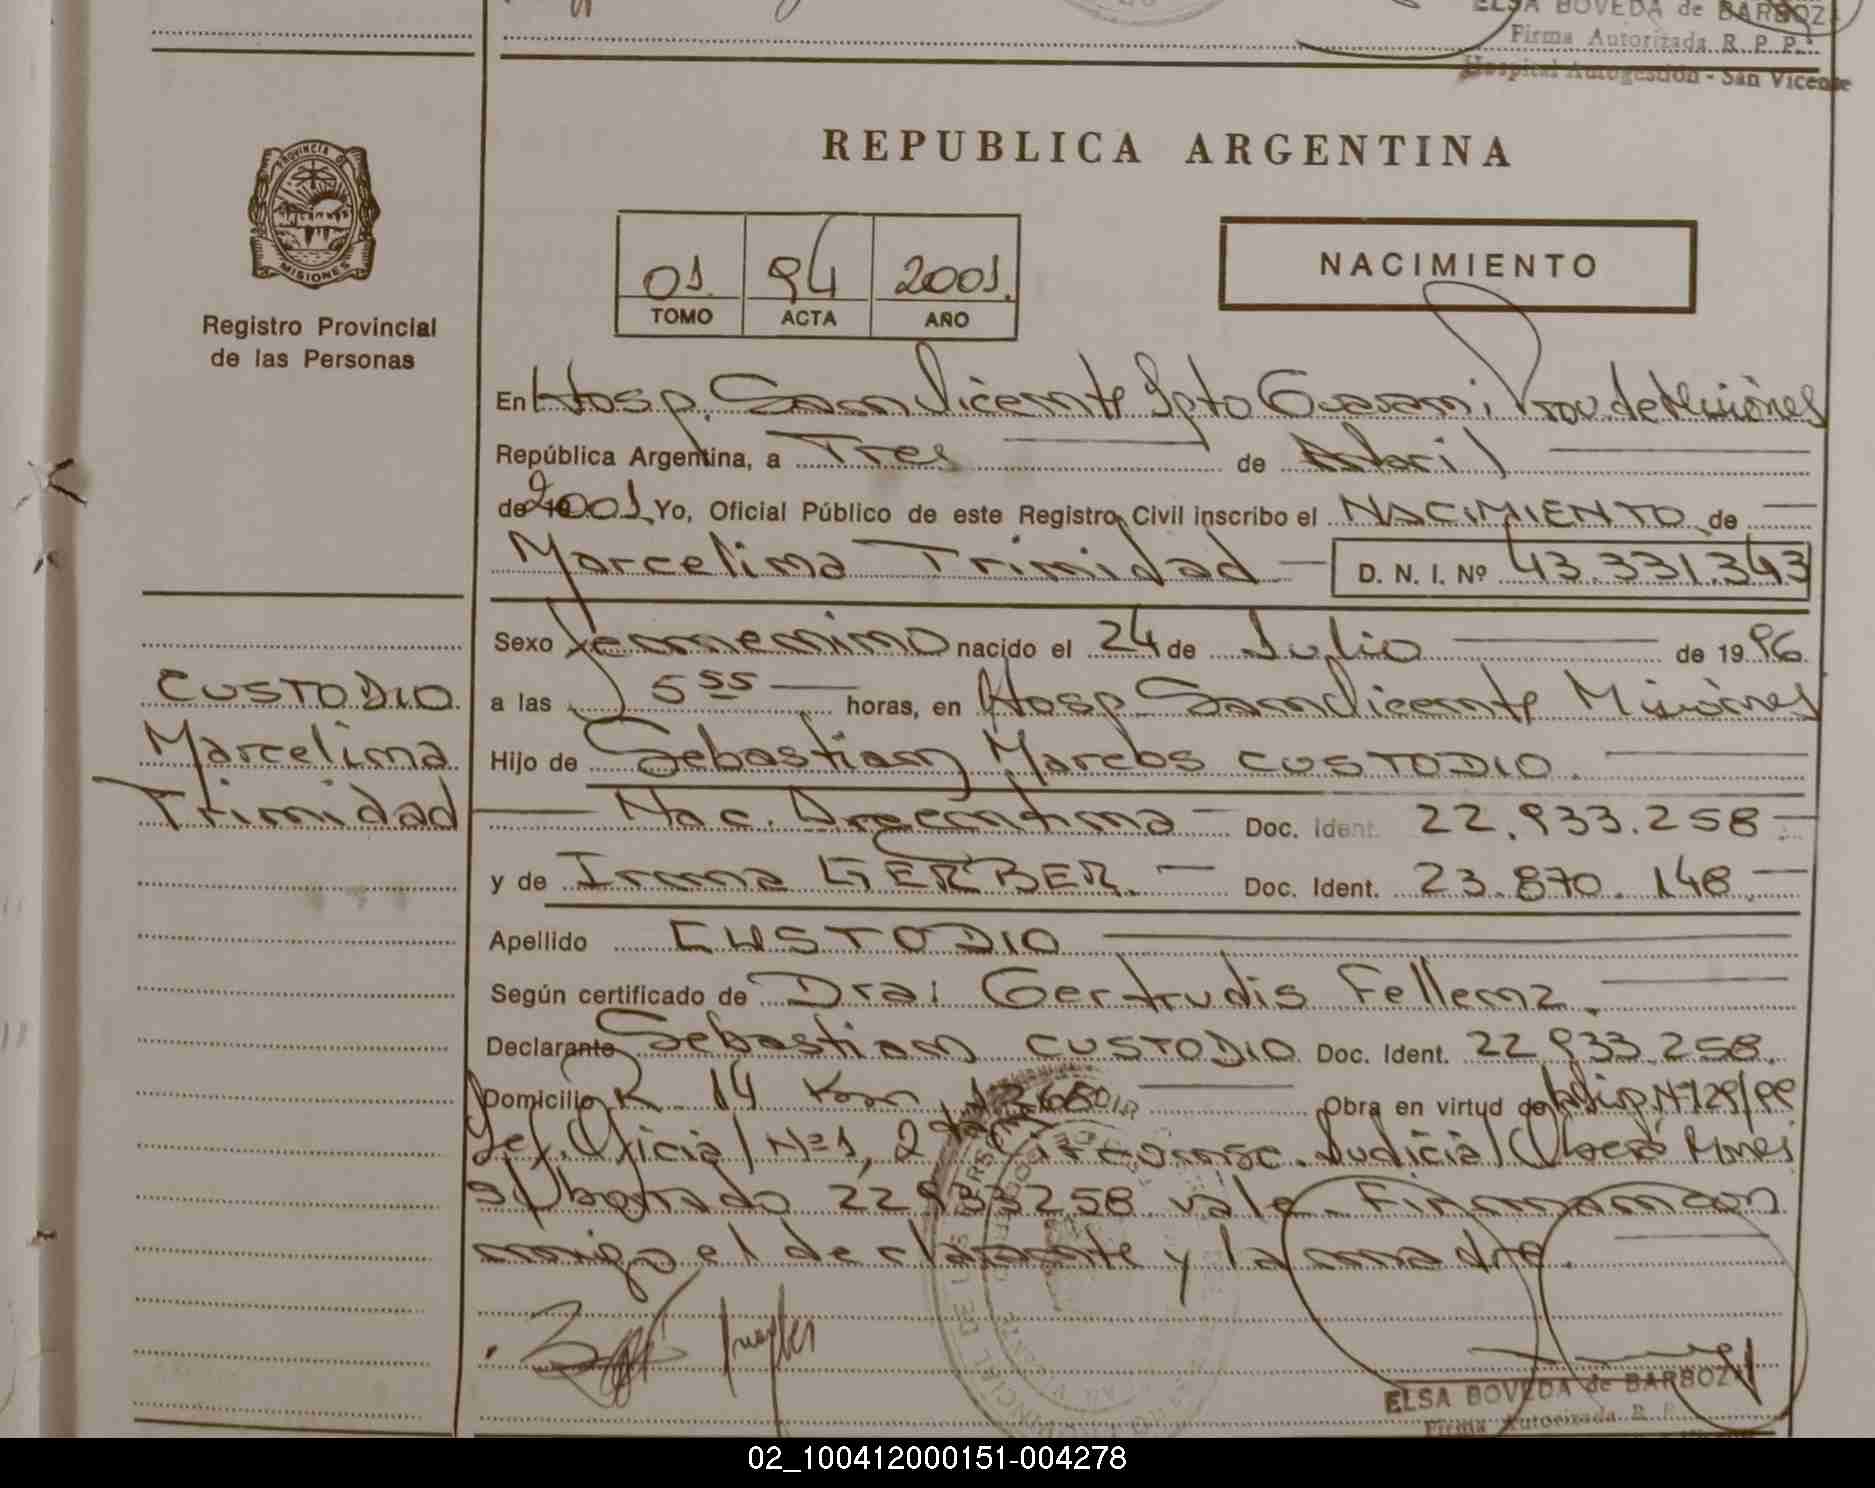 ELSA BOVEDA de BARBOZA
Firma Autorizada R. P. P.
Hospital Autogestión - San Vicente
PROVINCIA DE
MISIONES
Registro Provincial
de las Personas
REPUBLICA ARGENTINA
01 94 2001
TOMO ACTA AÑO
NACIMIENTO
En Hosp. San Vicente Dpto Guarani Prov de Misiones
República Argentina, a Tres de Abril
de 2001 Yo, Oficial Público de este Registro Civil inscribo el NACIMIENTO de
Marcelina Trinidad D. N. I. Nº 43.331.343
Sexo femenino nacido el 24 de Julio de 1996
a las 5 55 horas, en Hosp San Vicente Misiones
Hijo de Sebastian Marcos CUSTODIO.
Nac. Argentina Doc. Ident. 22.933.258
y de Irma GERBER. Doc. Ident. 23.870.148
Apellido CUSTODIO
Según certificado de Dra: Gertrudis Fellenz.
Declarante Sebastian CUSTODIO Doc. Ident. 22 933.258.
Domicilio R 14 Km Obra en virtud de Disp Nº 129/99
Def. Oficial Nº 1, 2 Circunsc. Judicial Oberá Mnes
s/borrado 22 933258 vale. Firman con
migo el declarante y la madre.
ELSA BOVEDA de BARBOZA
Firma Autorizada R. P.
CUSTODIO
Marcelina
Trinidad
02_100412000151-004278